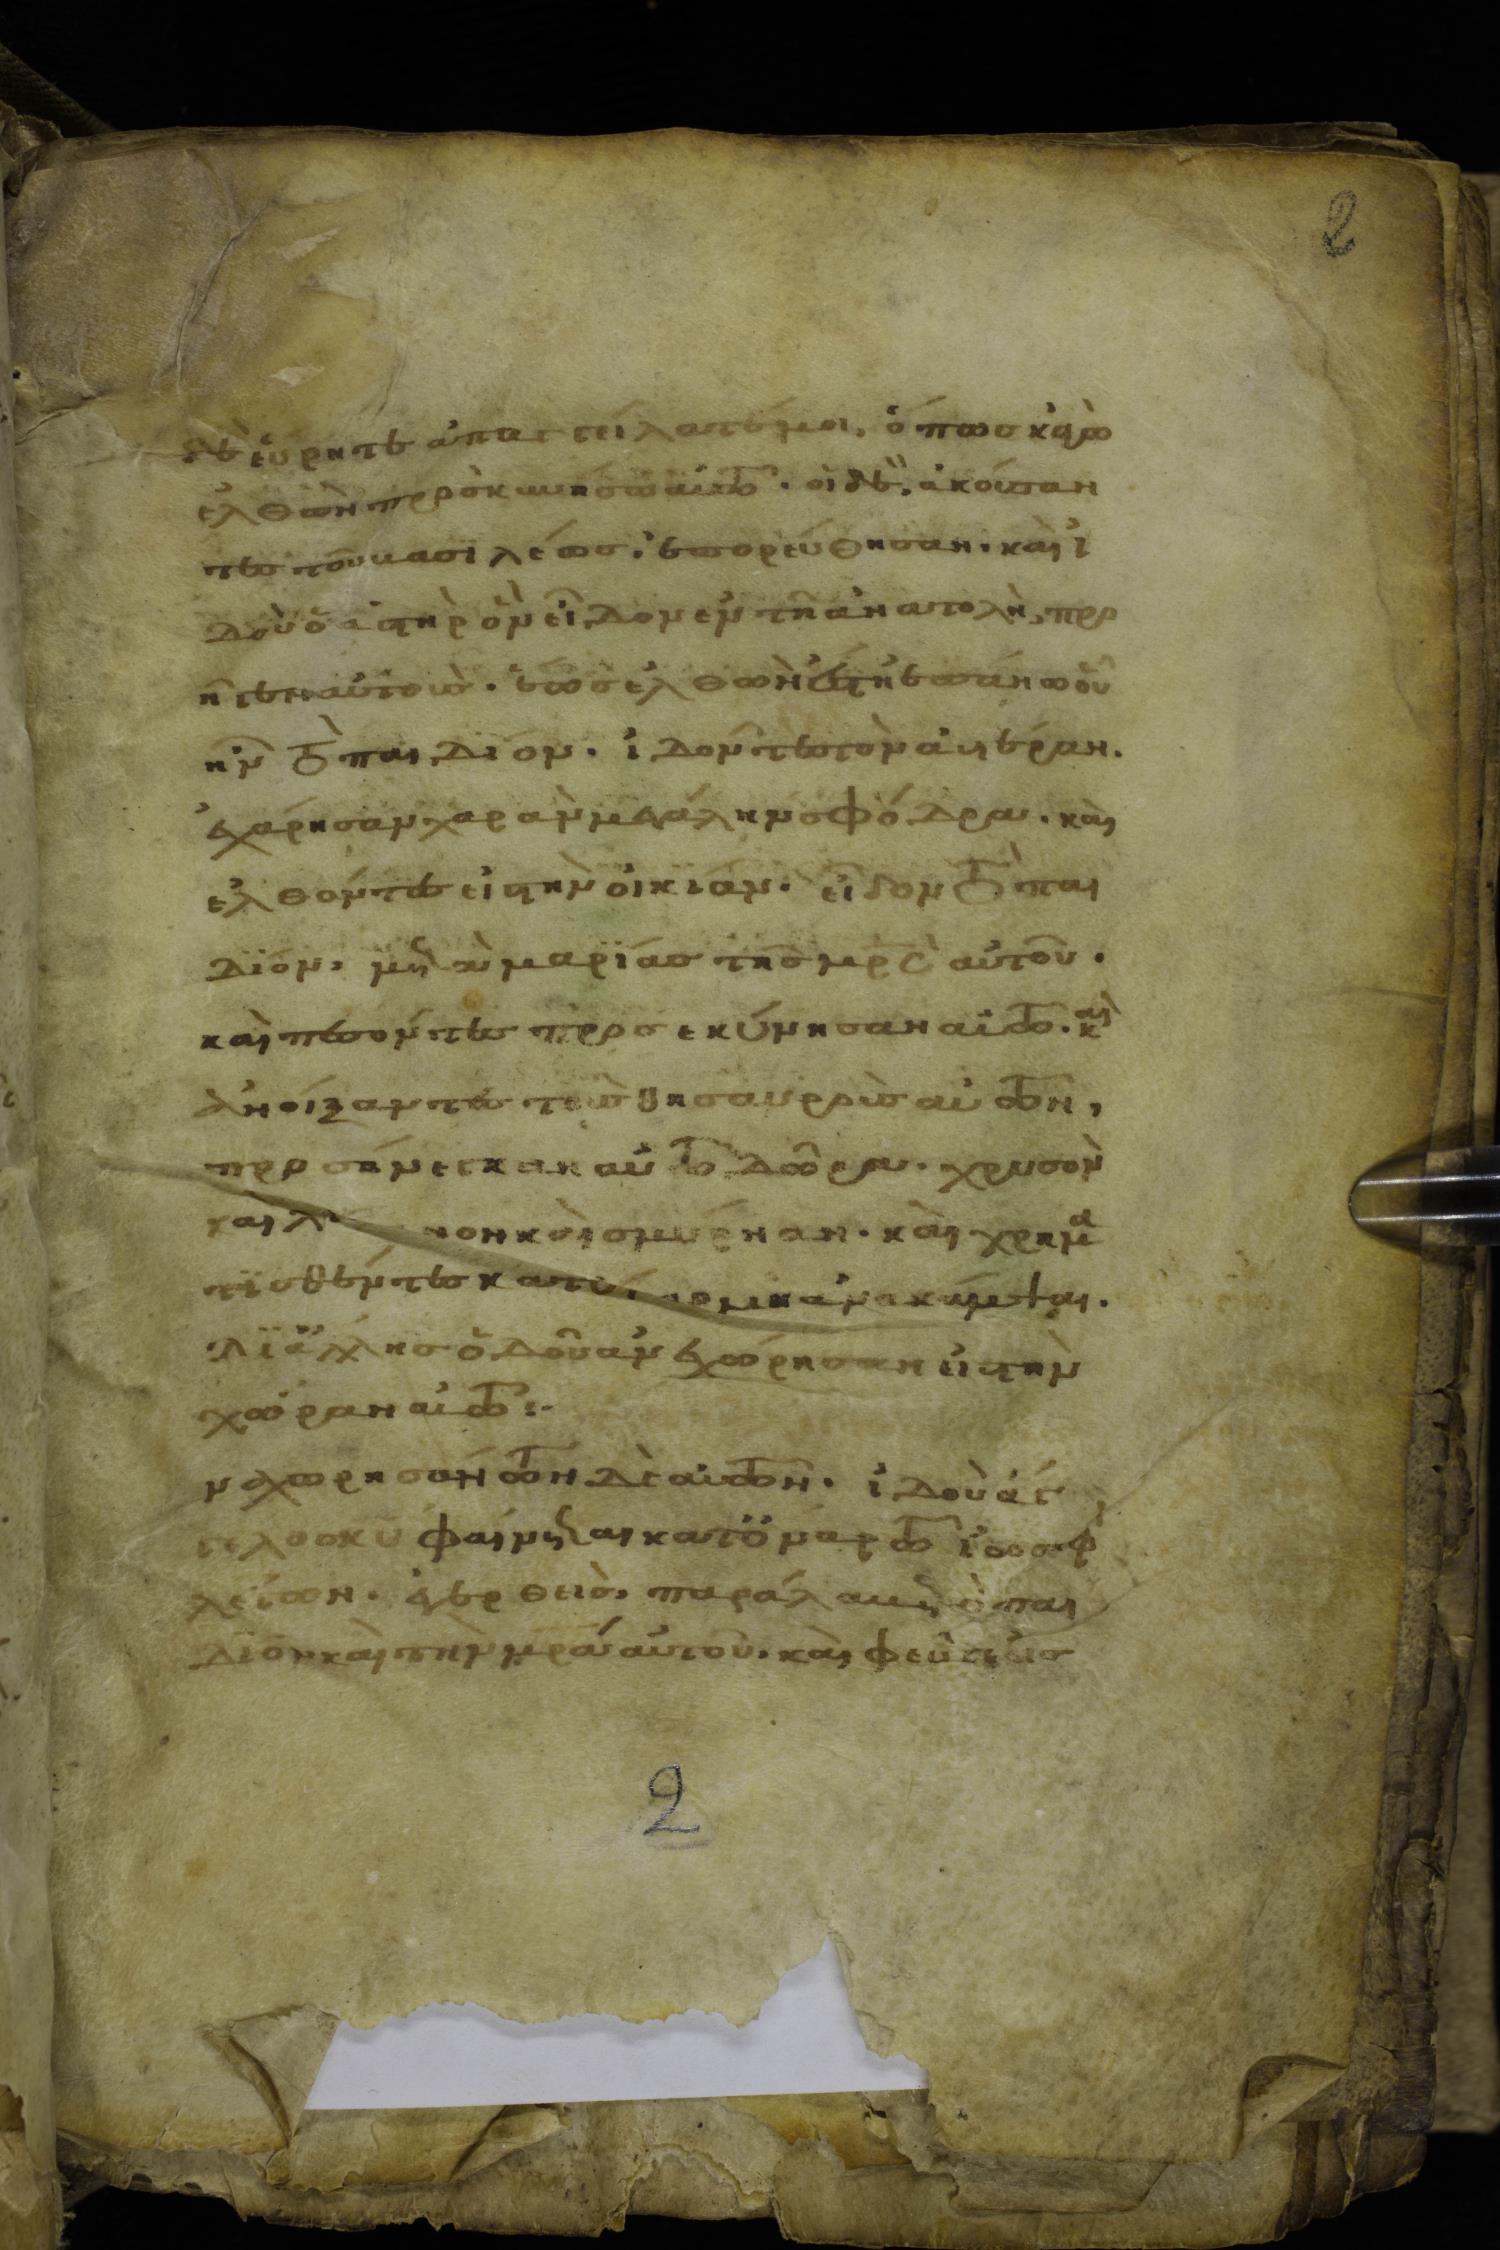 2
δὲ εὕρητε ἀπαγγείλατέ μοι, ὅπως κἀγὼ
ἐλθὼν προσκυνήσω αὐτῶ. οἱ δὲ, ἀκούσαν
τες τοῦ βασιλέως, ἐπορεύθησαν. καὶ ἰ
δοὺ ὁ ἀστὴρ ὃν εἶδον ἐν τῆ ἀνατολῆ, προ
ῆγεν αὐτοὺς. ἕως ἐλθὼν ἔστη ἐπάνω οὗ
ἦν τὸ παιδίον. ἰδόντες τὸν ἀστέραν.
ἐχάρησαν χαρὰν μεγάλην σφόδρα. καὶ
ἐλθόντες εἰς τὴν οἰκίαν. εἶδον τὸ παι
δίον, μετὰ μαρίας τῆς μρς αὐτοῦ.
καὶ πεσόντες προσεκύνησαν αὐτῶ. καὶ
ἀνοίξαντες τοὺς θησαυροὺς αὐτῶν,
προσήνεγκαν αὐτῶ δῶρα. χρυσὸν
καὶ λίβανον καὶ σμύρναν. καὶ χρημα
τισθέντες κατ' ὄναρ μὴ ἀνακάμψαι.
δι ἄλλης ὁδοῦ ἀνεχώρησαν εἰς τὴν
χώραν αὐτῶν:
νεχωρησάντων δὲ αὐτῶν. ἰδοὺ ἄγ
γελος κυ φαίνεται κατ ὄναρ τῶ ἰωσὴφ
λέγων. ἐγερθεὶς, παράλαβε τὸ παι
δίον καὶ τὴν μρα αὐτοῦ. καὶ φεῦγε εἰς
2